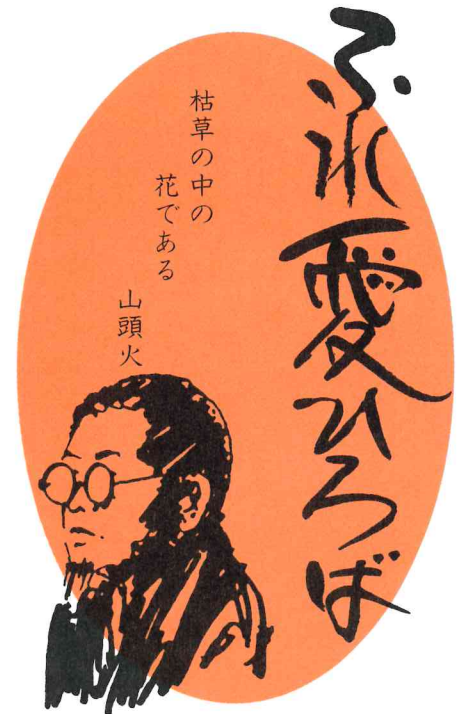 ふれ愛ひろば
枯草の中の
花である
山頭火